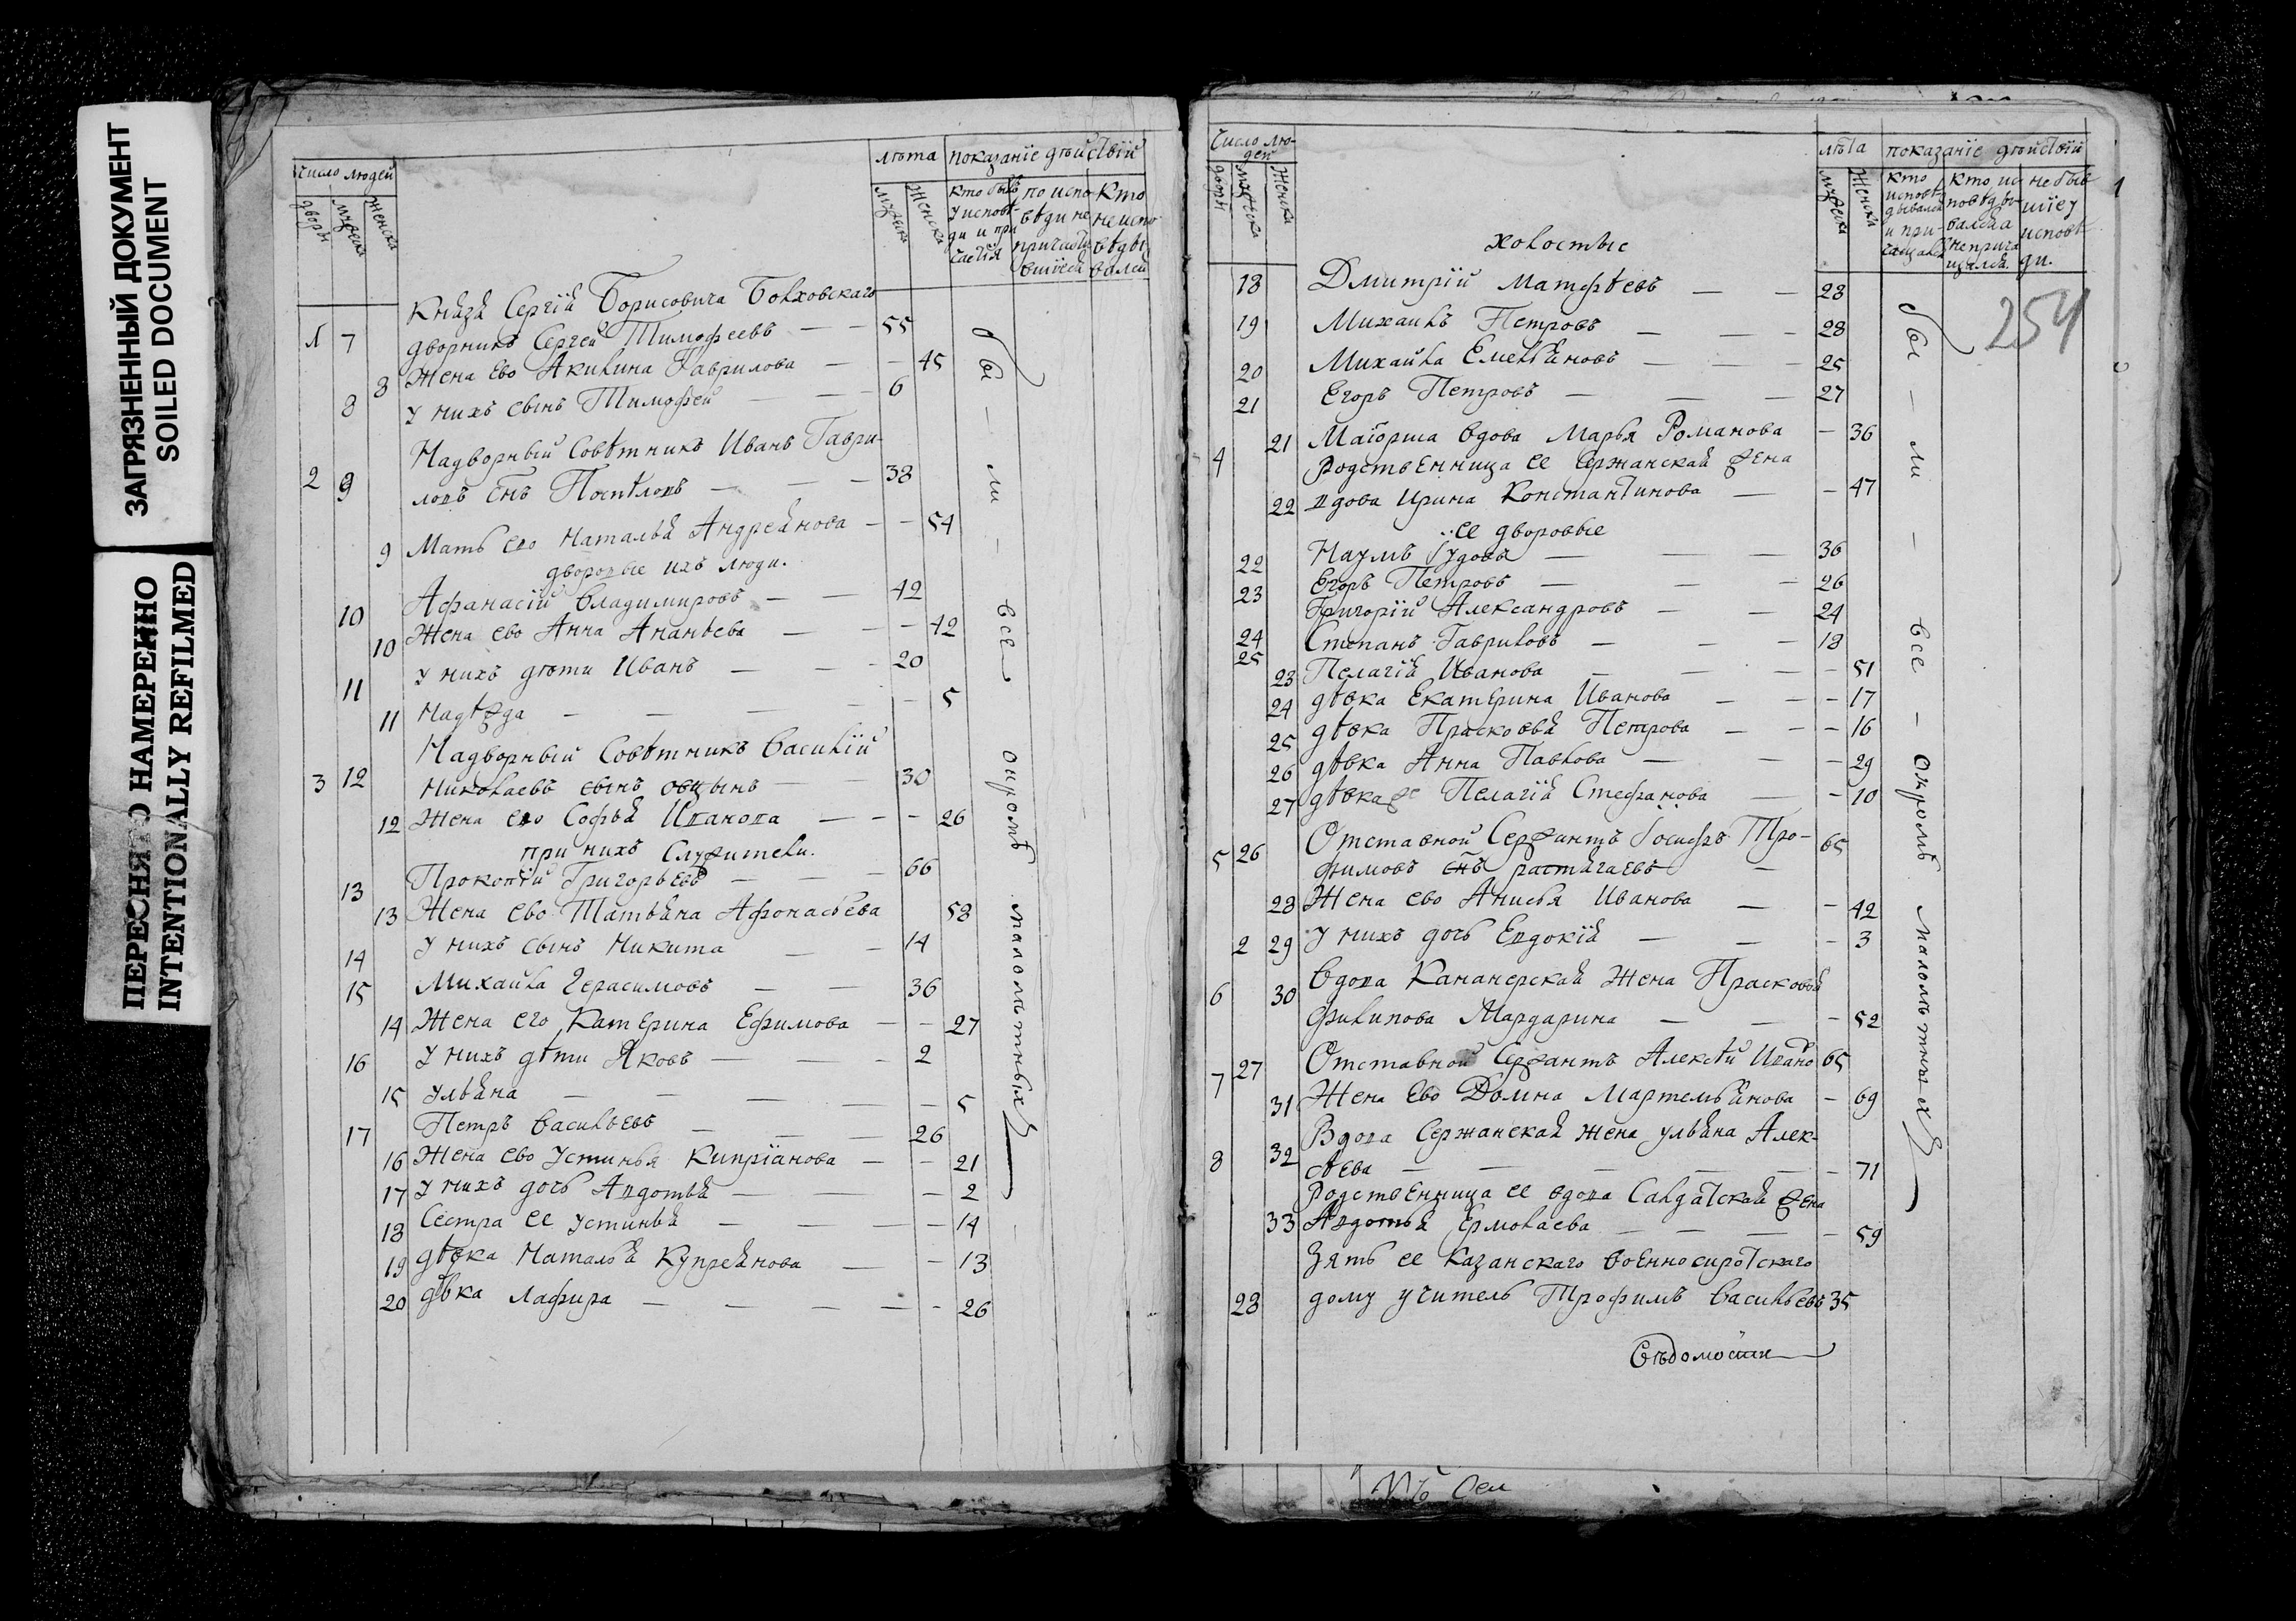 ЗАГРЯЗНЕННЫЙ ДОКУМЕНТ
SOILED DOCUMENT
ПЕРЕСНЯТО НАМЕРЕННО
INTENTIONALLY REFILMED
число людей
дворы
мужеска
женска
лѣта
мужеска
женска
показанїе дѣйствїй
кто былъ у исповѣди и при
по исповѣди не
кто не испо
Князя Сергїя Борисовича Болховскаго
1 7 дворникъ Сергей Тимофеевъ — — 55
8 Жена ево Акилина Гаврилова — — 45
8 у нихъ сынъ Тимофей — — 6
Надворный Совѣтникъ Иванъ Гаври-
2 9 ловъ снъ Поспѣловъ — — — 38
9 Мать ево Наталья Андреянова — — 54
дворовые ихъ люди.
10 Афанасїй Владимировъ — — 42
10 Жена ево Анна Ананьева — — — 42
11 у нихъ дѣти Иванъ — — — 20
11 Надѣжда — — — — — 5
Надворный Совѣтникъ Василїй
3 12 Николаевъ сынъ — — 30
12 Жена ево Софья Иванова — — — 26
при нихъ Служители.
13 Прокопїй Григорьевъ — — — 66
13 Жена ево Татьяна Афонасьева 58
14 у нихъ сынъ Никита — — 14
15 Михайла Герасимовъ — — 36
14 Жена его Катерина Ефимова — — 27
16 у нихъ дѣти Яковъ — — — 2
15 Ульяна — — — — — 5
17 Петръ Васильевъ — — — 26
16 Жена ево Устинья Кипрїанова — — 21
17 у нихъ дочь Авдотья — — — 2
18 Сестра ее Устинья — — — — 14
19 дѣвка Наталья Купреянова — — 13
20 дѣвка — — — — — 26
бы — ли — все — окромѣ малолѣтныхъ
Число лю-
дей
дворы
мужеска
женска
лѣта
мужеска
женска
показанїе дѣйствїй
кто исповѣдывался и при-
кто исповѣдывался а не прича
не бывшїе у исповѣди.
254
холостые
18 Дмитрїй Матфѣевъ — — 28
19 Михаилъ Петровъ — — — 28
20 Михайла Емельяновъ — — — 25
21 Егоръ Петровъ — — — 27
4 21 Маїорша вдова Марья Романова — 36
Родственница ее Сержанская жена
22 вдова Ирина Константинова — — 47
ее дворовые
22 Наумъ — — — 36
23 Егоръ Петровъ — — — 26
24 Григорїй Александровъ — — 24
25 Степанъ Гавриловъ — — — 18
23 Пелагїя Иванова — — — — 51
24 дѣвка Екатерина Иванова — — — 17
25 дѣвка Прасковья Петрова — — — 16
26 дѣвка Анна Павлова — — — 29
27 дѣвка же Пелагїя Стефанова — — 10
5 26 Отставной Сержантъ Їосифъ Тро- 65
фимовъ снъ растягаевъ —
28 Жена ево Анисья Иванова — — 42
2 29 у нихъ дочь Евдокїя — — — 3
6 30 Вдова Жена Прасковья
Филипова Мардарина — — — 52
7 27 Отставной Сержантъ Алексѣй Ивано 65
31 Жена Ево Домна Мартемьянова — 69
8 32 Вдова Сержанская жена ульяна Алек-
сѣева — — — — — 71
Родственница ее вдова Салдатская жена
33 Авдотья Ермолаева — — — — 59
Зять ее Казанскаго военносиротскаго
28 дому учитель Трофимъ Васильевъ 35
бы — ли — все — окромѣ малолѣтныхъ